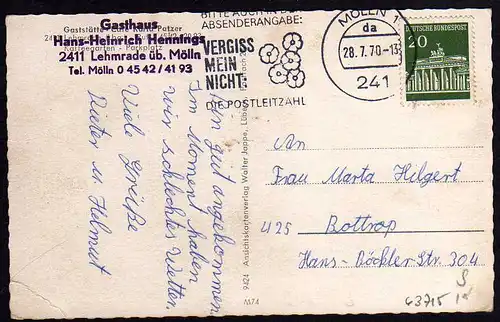 Gaststätte - Café Karla Patzer
Gasthaus
Hans-Heinrich Hennings
2411 Lehmrade üb. Mölln
Tel. Mölln 0 45 42 / 41 93
Kaffeegarten - Parkplatz
BITTE AUCH IN DER
ABSENDERANGABE:
VERGISS
MEIN
NICHT
DIE POSTLEITZAHL
MÖLLN 1
da
28.7.70-13
241
DEUTSCHE BUNDESPOST
20
gut angekommen
Im Moment haben
wir schlechtes Wetter.
Viele Grüße
Dieter u. Helmut
Ansichtskartenverlag Walter Jappe, Lübeck
9424
M74
An
Frau Marta Hilgert
425 Bottrop
Hans-Böckler-Str. 304
43715